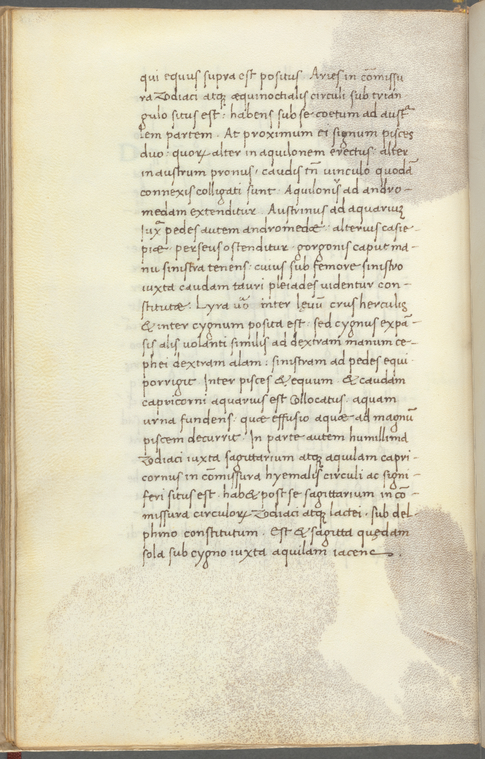 qui equus supra est positus. Aries in cõmissu
ra Zodiaci atqꝫ æquinoctialis circuli sub trian-
gulo situs est: habens sub se coetum ad austr̃
lem partem. At proximum ei signum pisces
duo. quoꝝ alter in aquilonem erectus. alter
in austrum pronus. caudis tñ uinculo quodã
connexis colligati sunt. Aquilonis̃ ad andro-
medam extenditur. Austrinus ad aquariuꝫ
Iux̃ pedes autem andromedæ. alterius casie-
piæ. perseus ostenditur. gorgonis caput ma-
nu sinistra tenens. cuius sub femore sinistro
iuxta caudam tauri pleiades uidentur con-
stitutæ. Lyra uõ inter leuũ crus herculis
& inter cygnum posita est. sed cygnus expã-
sis alis uolanti similis ad dextram manum ce-
phei dextram alam: sinistram ad pedes equi
porrigit. Inter pisces & equum. & caudam
capricorni aquarius est collocatus. aquam
urna fundens. quæ effusio aquæ ad magnũ
piscem decurrit. In parte autem humillima
Zodiaci iuxta sagittarium atqꝫ aquilam capri-
cornus in cõmissura hyemalis circuli ac signi-
feri situs est. hab& post se sagittarium in cõ-
missura circuloꝝ Zodiaci atqꝫ lactei. sub del-
phino constitutum. Est & sagitta quędam
sola sub cygno iuxta aquilam iacens.